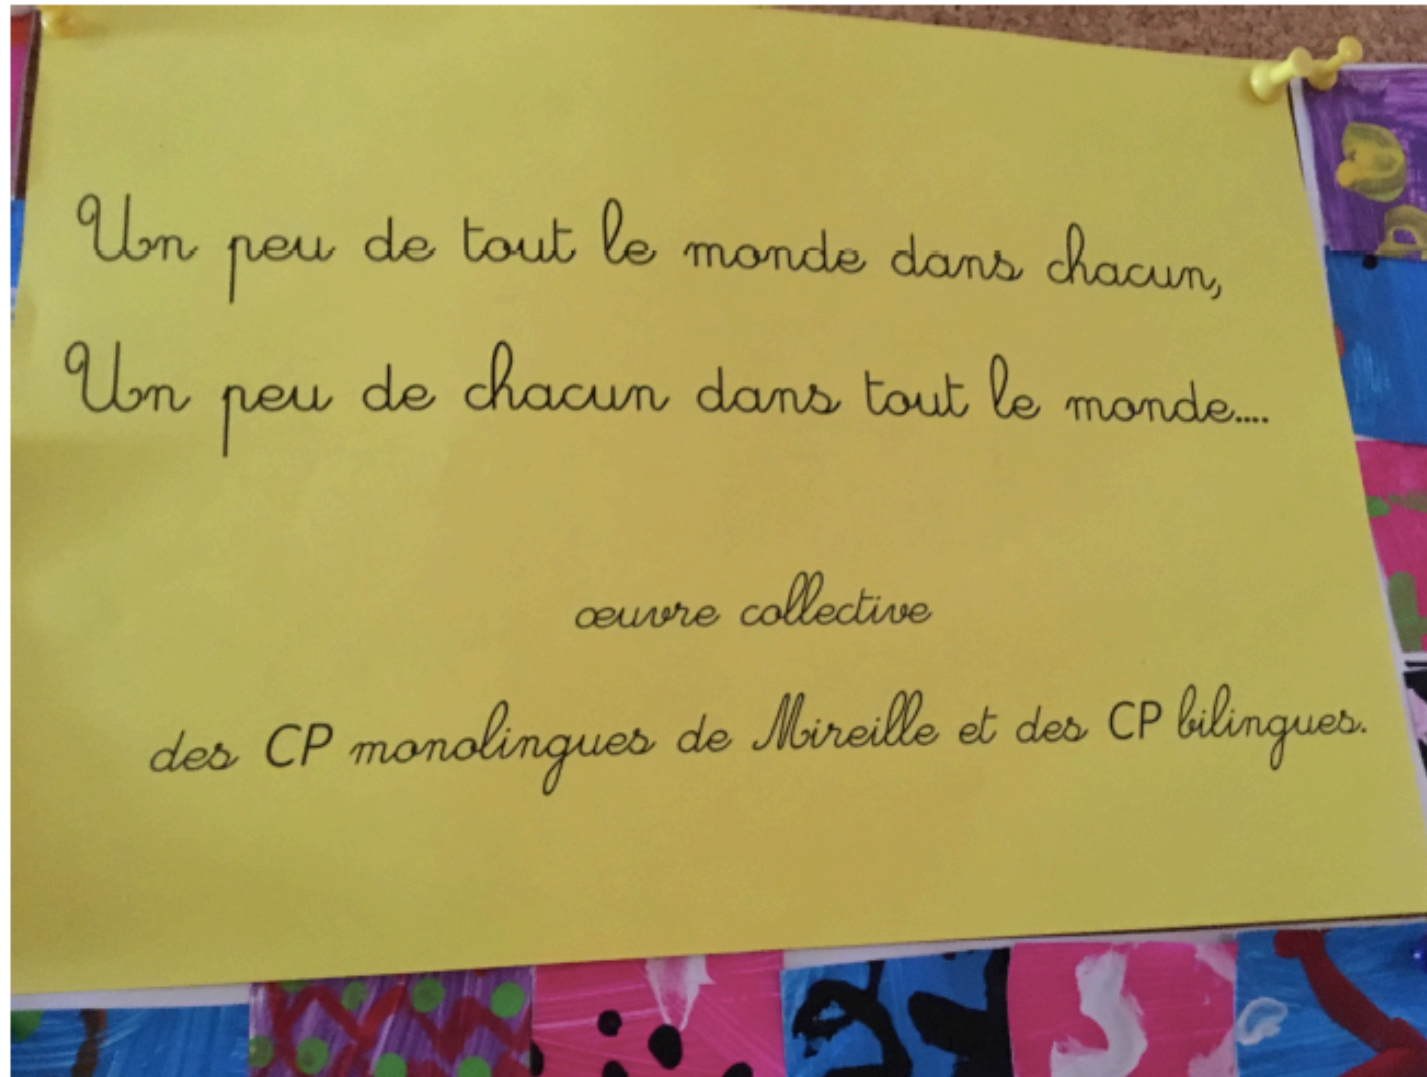 Un peu de tout le monde dans chacun,
Un peu de chacun dans tout le monde....
œuvre collective
des CP monolingues de Mireille et des CP bilingues.